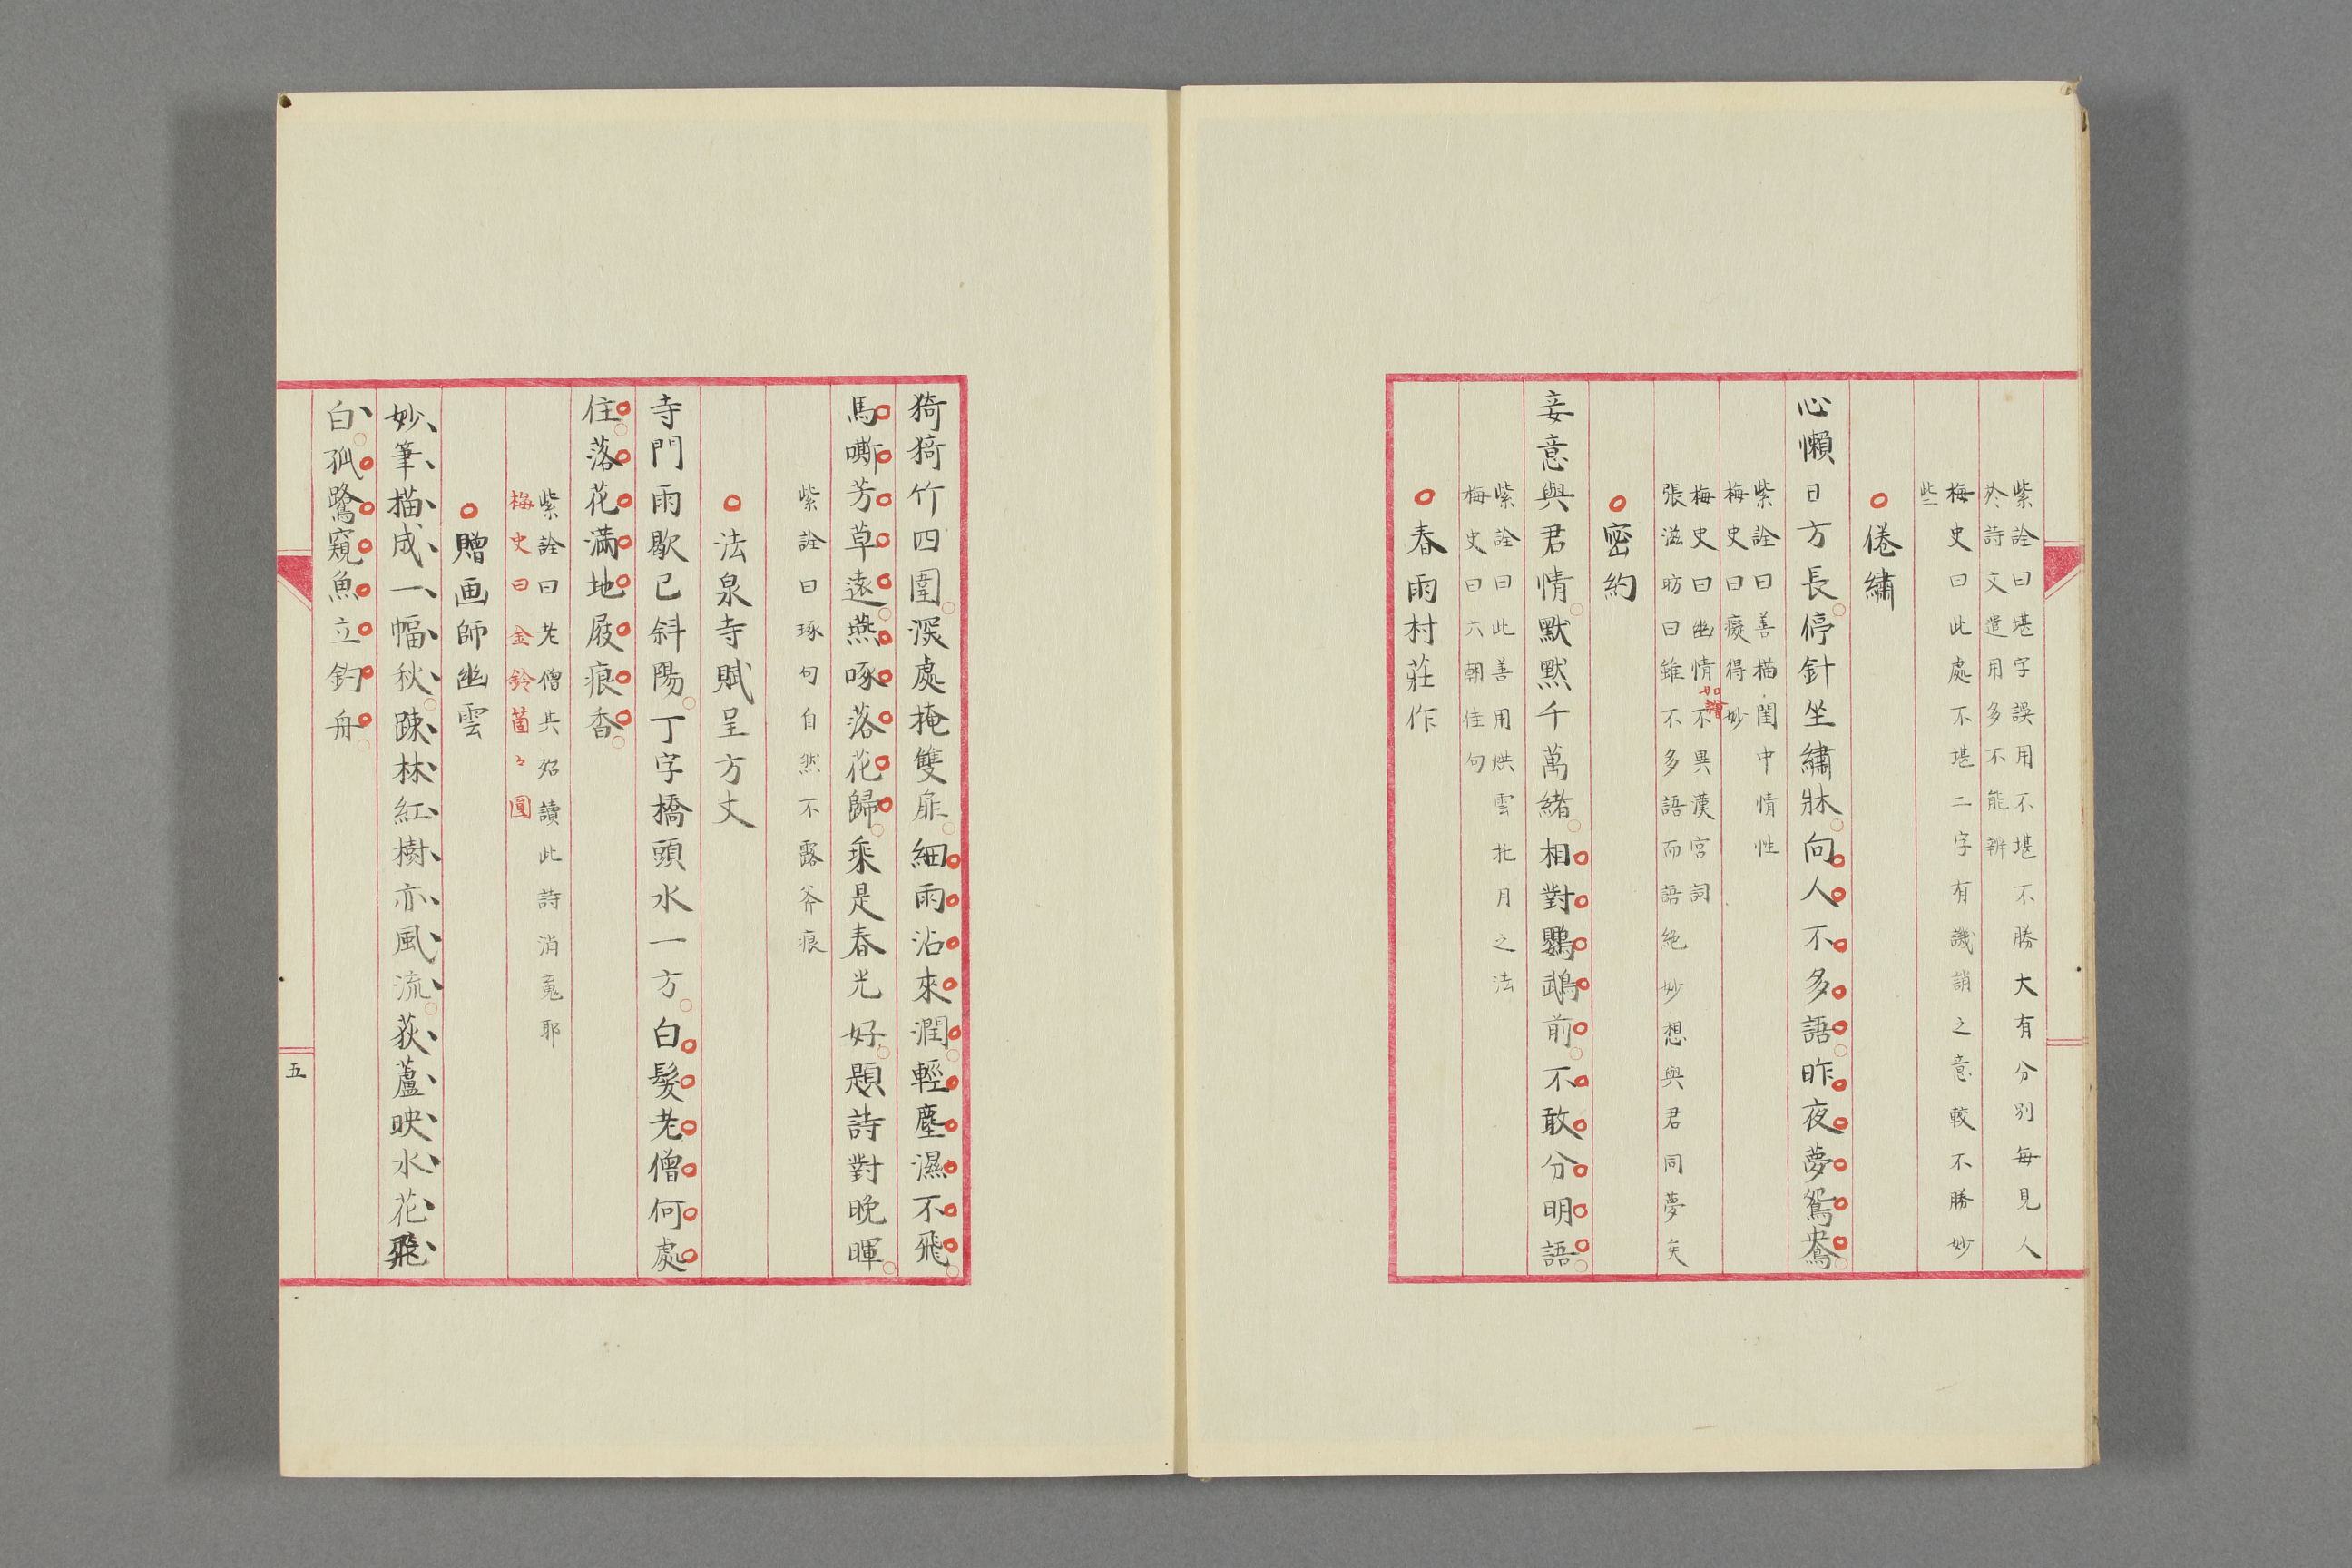 紫詮曰堪字誤用不堪不勝大有分別每見人
於詩文遣用多不能辨
梅史曰此處不堪二字有譏誚之意較不勝妙
些
倦繡
心懶日方長停針坐繡牀向人不多語昨夜夢鴛鴦
紫詮曰善描閨中情性
梅史曰癡得如繪妙
梅史曰幽情不異漢宮詞
張滋昉曰雖不多語而語絶妙想與君同夢矣
密約
妾意與君情默默千萬緒相對鸚鵡前不敢分明語
紫詮曰此善用烘雲托月之法
梅史曰六朝佳句
春雨村莊作
猗猗竹四圍深處掩雙扉細雨沾來潤輕塵濕不飛
馬嘶芳草遠燕啄落花歸乘是春光好題詩對晚暉
紫詮曰琢句自然不露斧痕
法泉寺賦呈方丈
寺門雨歇已斜陽丁字橋頭水一方白髮老僧何處
住落花滿地屐痕香
紫詮曰老僧共妳讀此詩消魂耶
梅史曰金鈴箇々圓
贈画師幽雲
妙筆描成一幅秋疎林紅樹亦風流荻蘆映水花飛
白孤鷺窺魚立釣舟
五